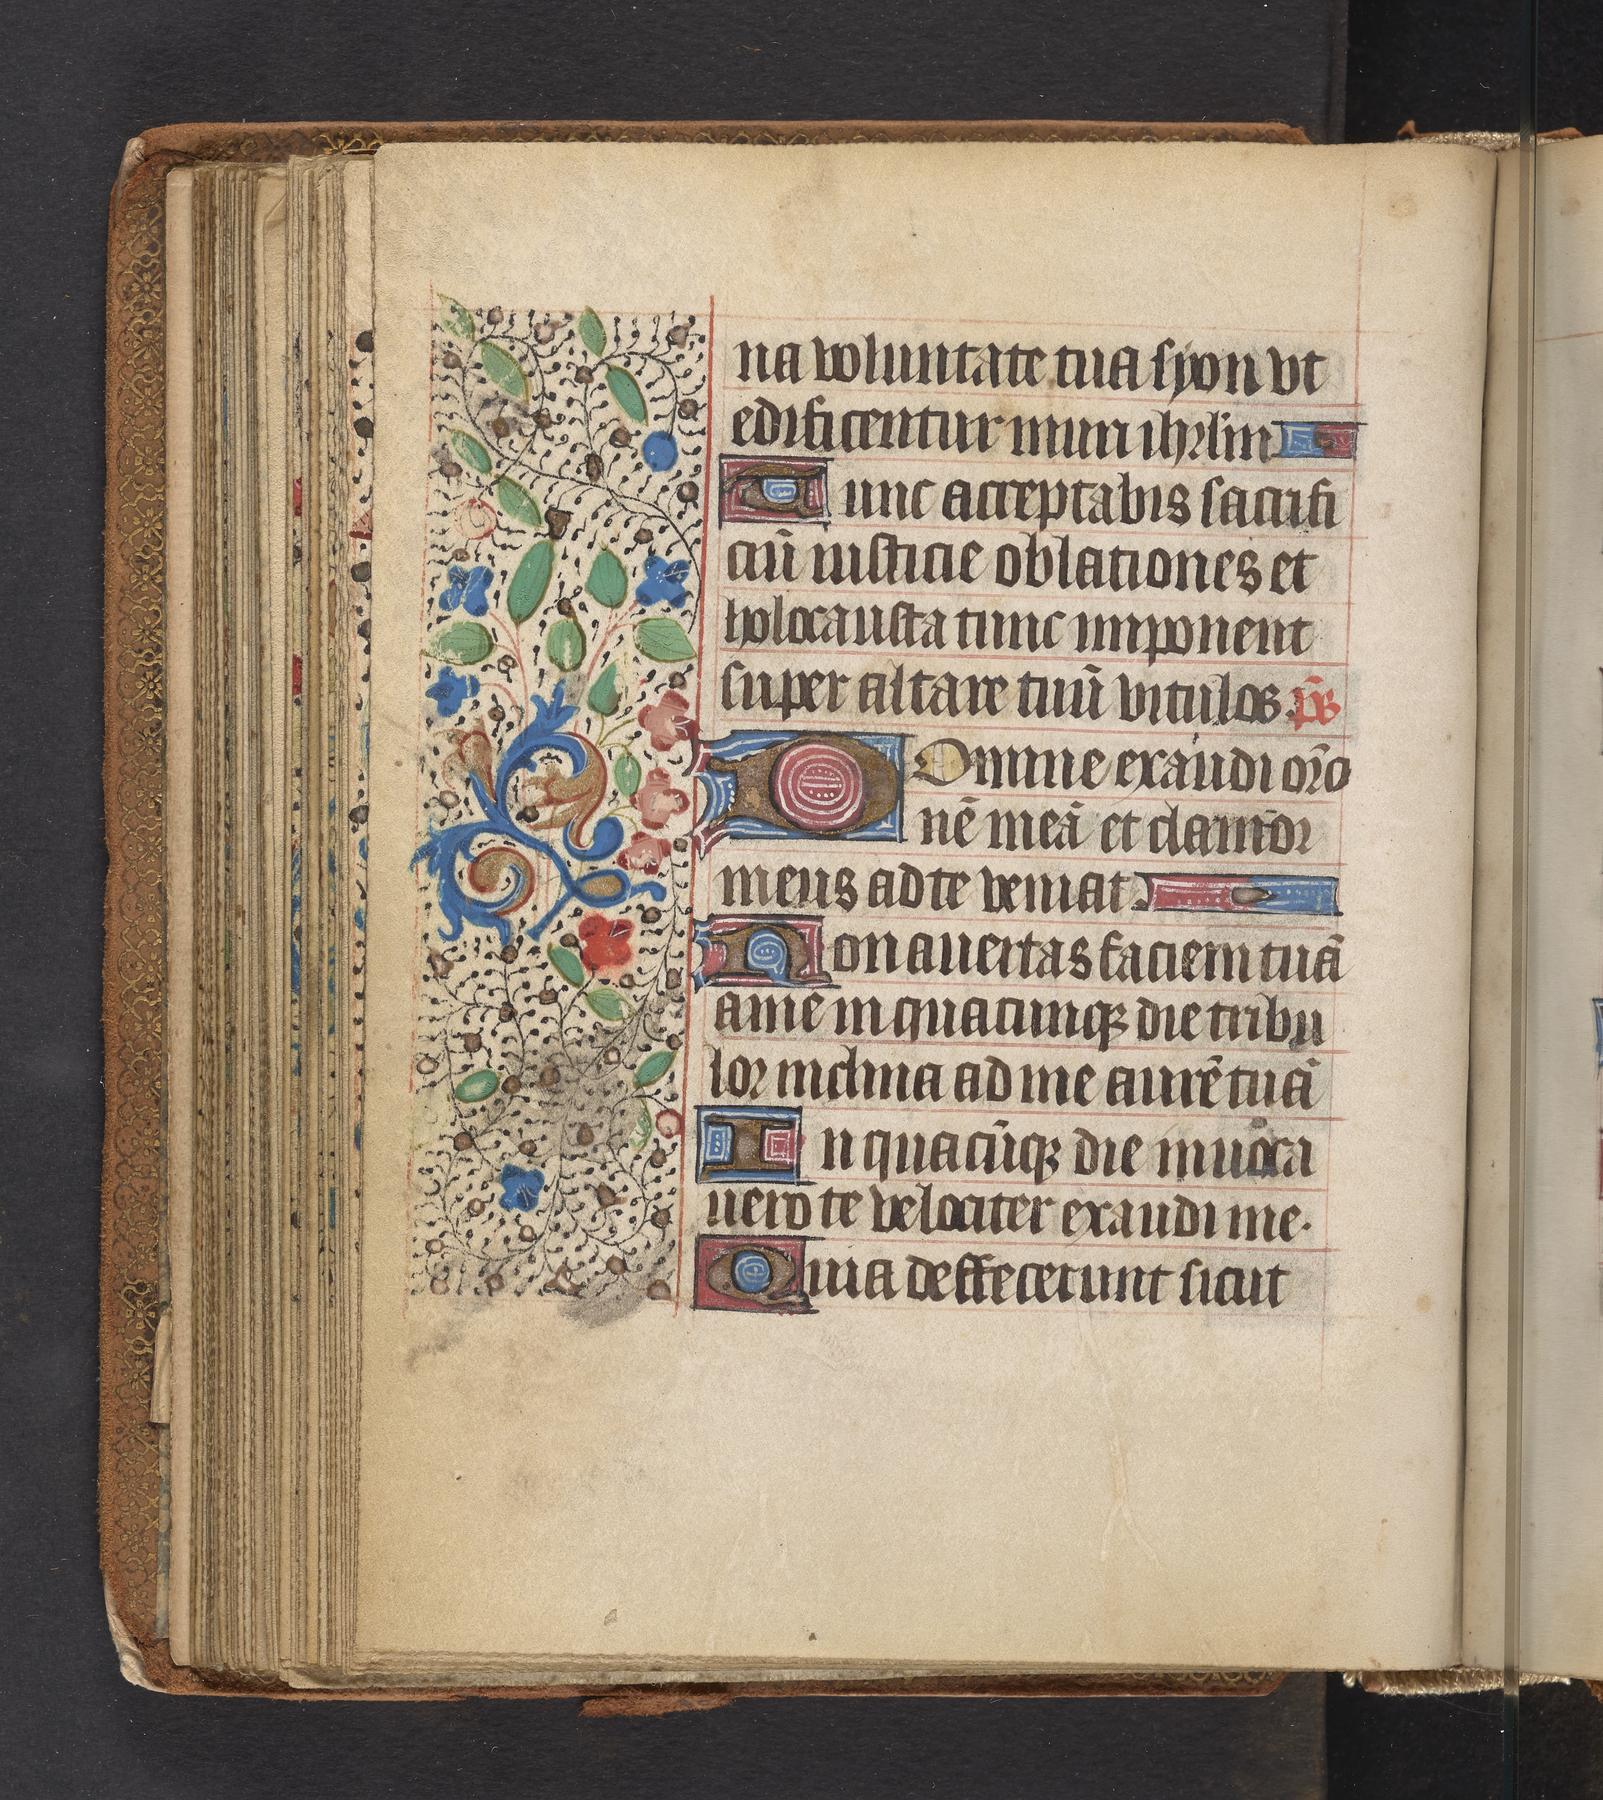 na voluntate tua syon vt
edificentur muri ihrlm
Tunc acceptabis sacrifi
ciū iusticie oblationes et
holocausta tunc imponent
super altare tuū vitulos. ps
Domine exaudi orō
nē meā et clamor
meus ad te veniat.
Non auertas faciem tuā
a me in quacumqꝫ die tribu
lor inclina ad me aurē tuā
In quacūqꝫ die inuoca
uero te velociter exaudi me.
Quia deffecerunt sicut